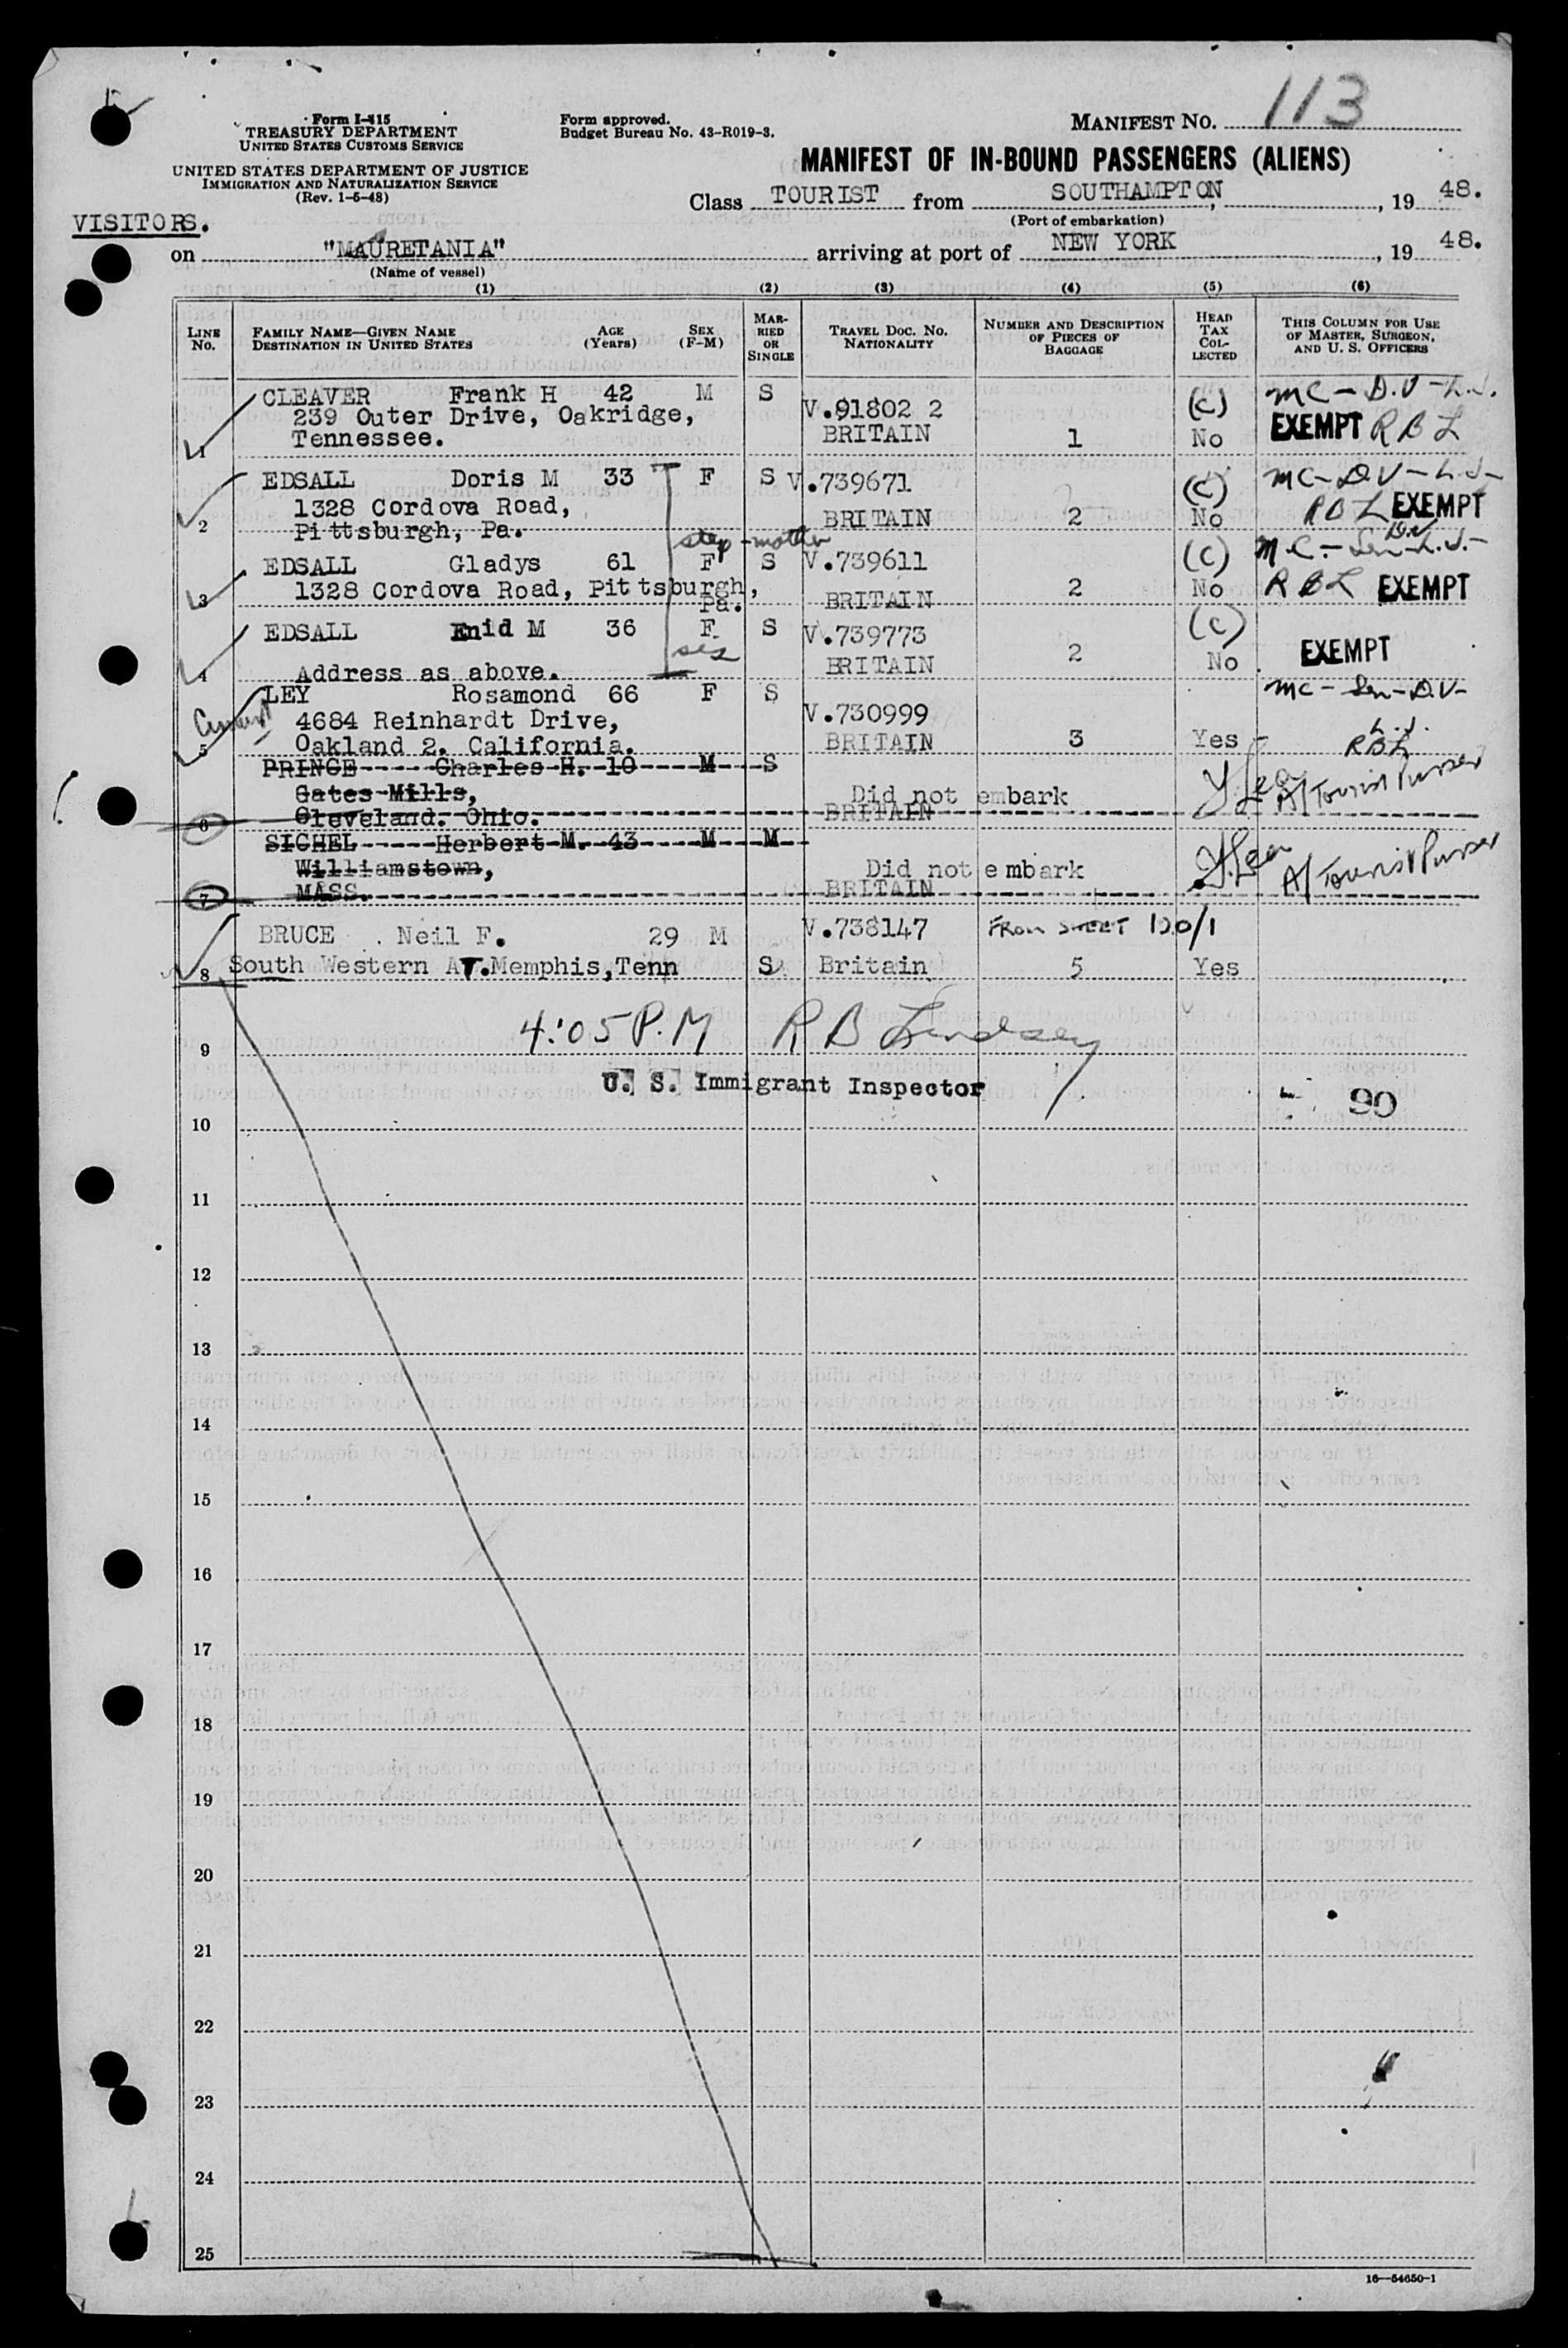 113
Form I-415
TREASURY DEPARTMENT
UNITED STATES CUSTOMS SERVICE
UNITED STATES DEPARTMENT OF JUSTICE
IMMIGRATION AND NATURALIZATION SERVICE
(Rev. 1-5-48)
Form approved.
Budget Bureau No. 43-R019-3.
MANIFEST NO.
MANIFEST OF IN-BOUND PASSENGERS (ALIENS)
Class TOURIST from SOUTHAMPTON, 19 48.
(Port of embarkation)
VISITORS.
on "MAURETANIA" arriving at port of NEW YORK, 19 48.
(Name of vessel)
(1) (2) (3) (4) (5) (6)
LINE No. FAMILY NAME—GIVEN NAME DESTINATION IN UNITED STATES AGE (Years) SEX (F-M) MARRIED OR SINGLE TRAVEL DOC. NO. NATIONALITY NUMBER AND DESCRIPTION OF PIECES OF BAGGAGE HEAD TAX COLLECTED THIS COLUMN FOR USE OF MASTER, SURGEON, AND U. S. OFFICERS
CLEAVER Frank H 42 M S V.91802 2 (c) MC - D.V - L.J.
239 Outer Drive, Oakridge, EXEMPT R B L
1 Tennessee. BRITAIN 1 No
EDSALL Doris M 33 F S V.739671 (c) MC - D V - L.J-
1328 Cordova Road, R B L EXEMPT
2 Pittsburgh, Pa. BRITAIN 2 No
step-mother D.V
EDSALL Gladys 61 F S V.739611 (c) M.C. - Sen - L.J. -
3 1328 Cordova Road, Pittsburgh, Pa. BRITAIN 2 No R B L EXEMPT
EDSALL Enid M 36 F S V.739773 (c)
sis
4 Address as above. BRITAIN 2 No EXEMPT
LEY Rosamond 66 F S MC - Sen - D.V-
4684 Reinhardt Drive, V.730999 L.J.
5 Oakland 2. California. BRITAIN 3 Yes - RBL
PRINGE Charles H. 10 M S
Gates Mills, Did not embark A/Tourist Purser
6 Cleveland. Ohio. BRITAIN
SICHEL Herbert M. 43 M M
Williamstown, Did not embark A/Tourist Purser
7 MASS. BRITAIN
BRUCE Neil F. 29 M V.738147 FROM SHEET 120/1
8 South Western AT.Memphis,Tenn S Britain 5 Yes
4:05 P.M R B Lindsey
9
U. S. Immigrant Inspector
90
10
11
12
13
14
15
16
17
18
19
20
21
22
23
24
25
16—54650-1